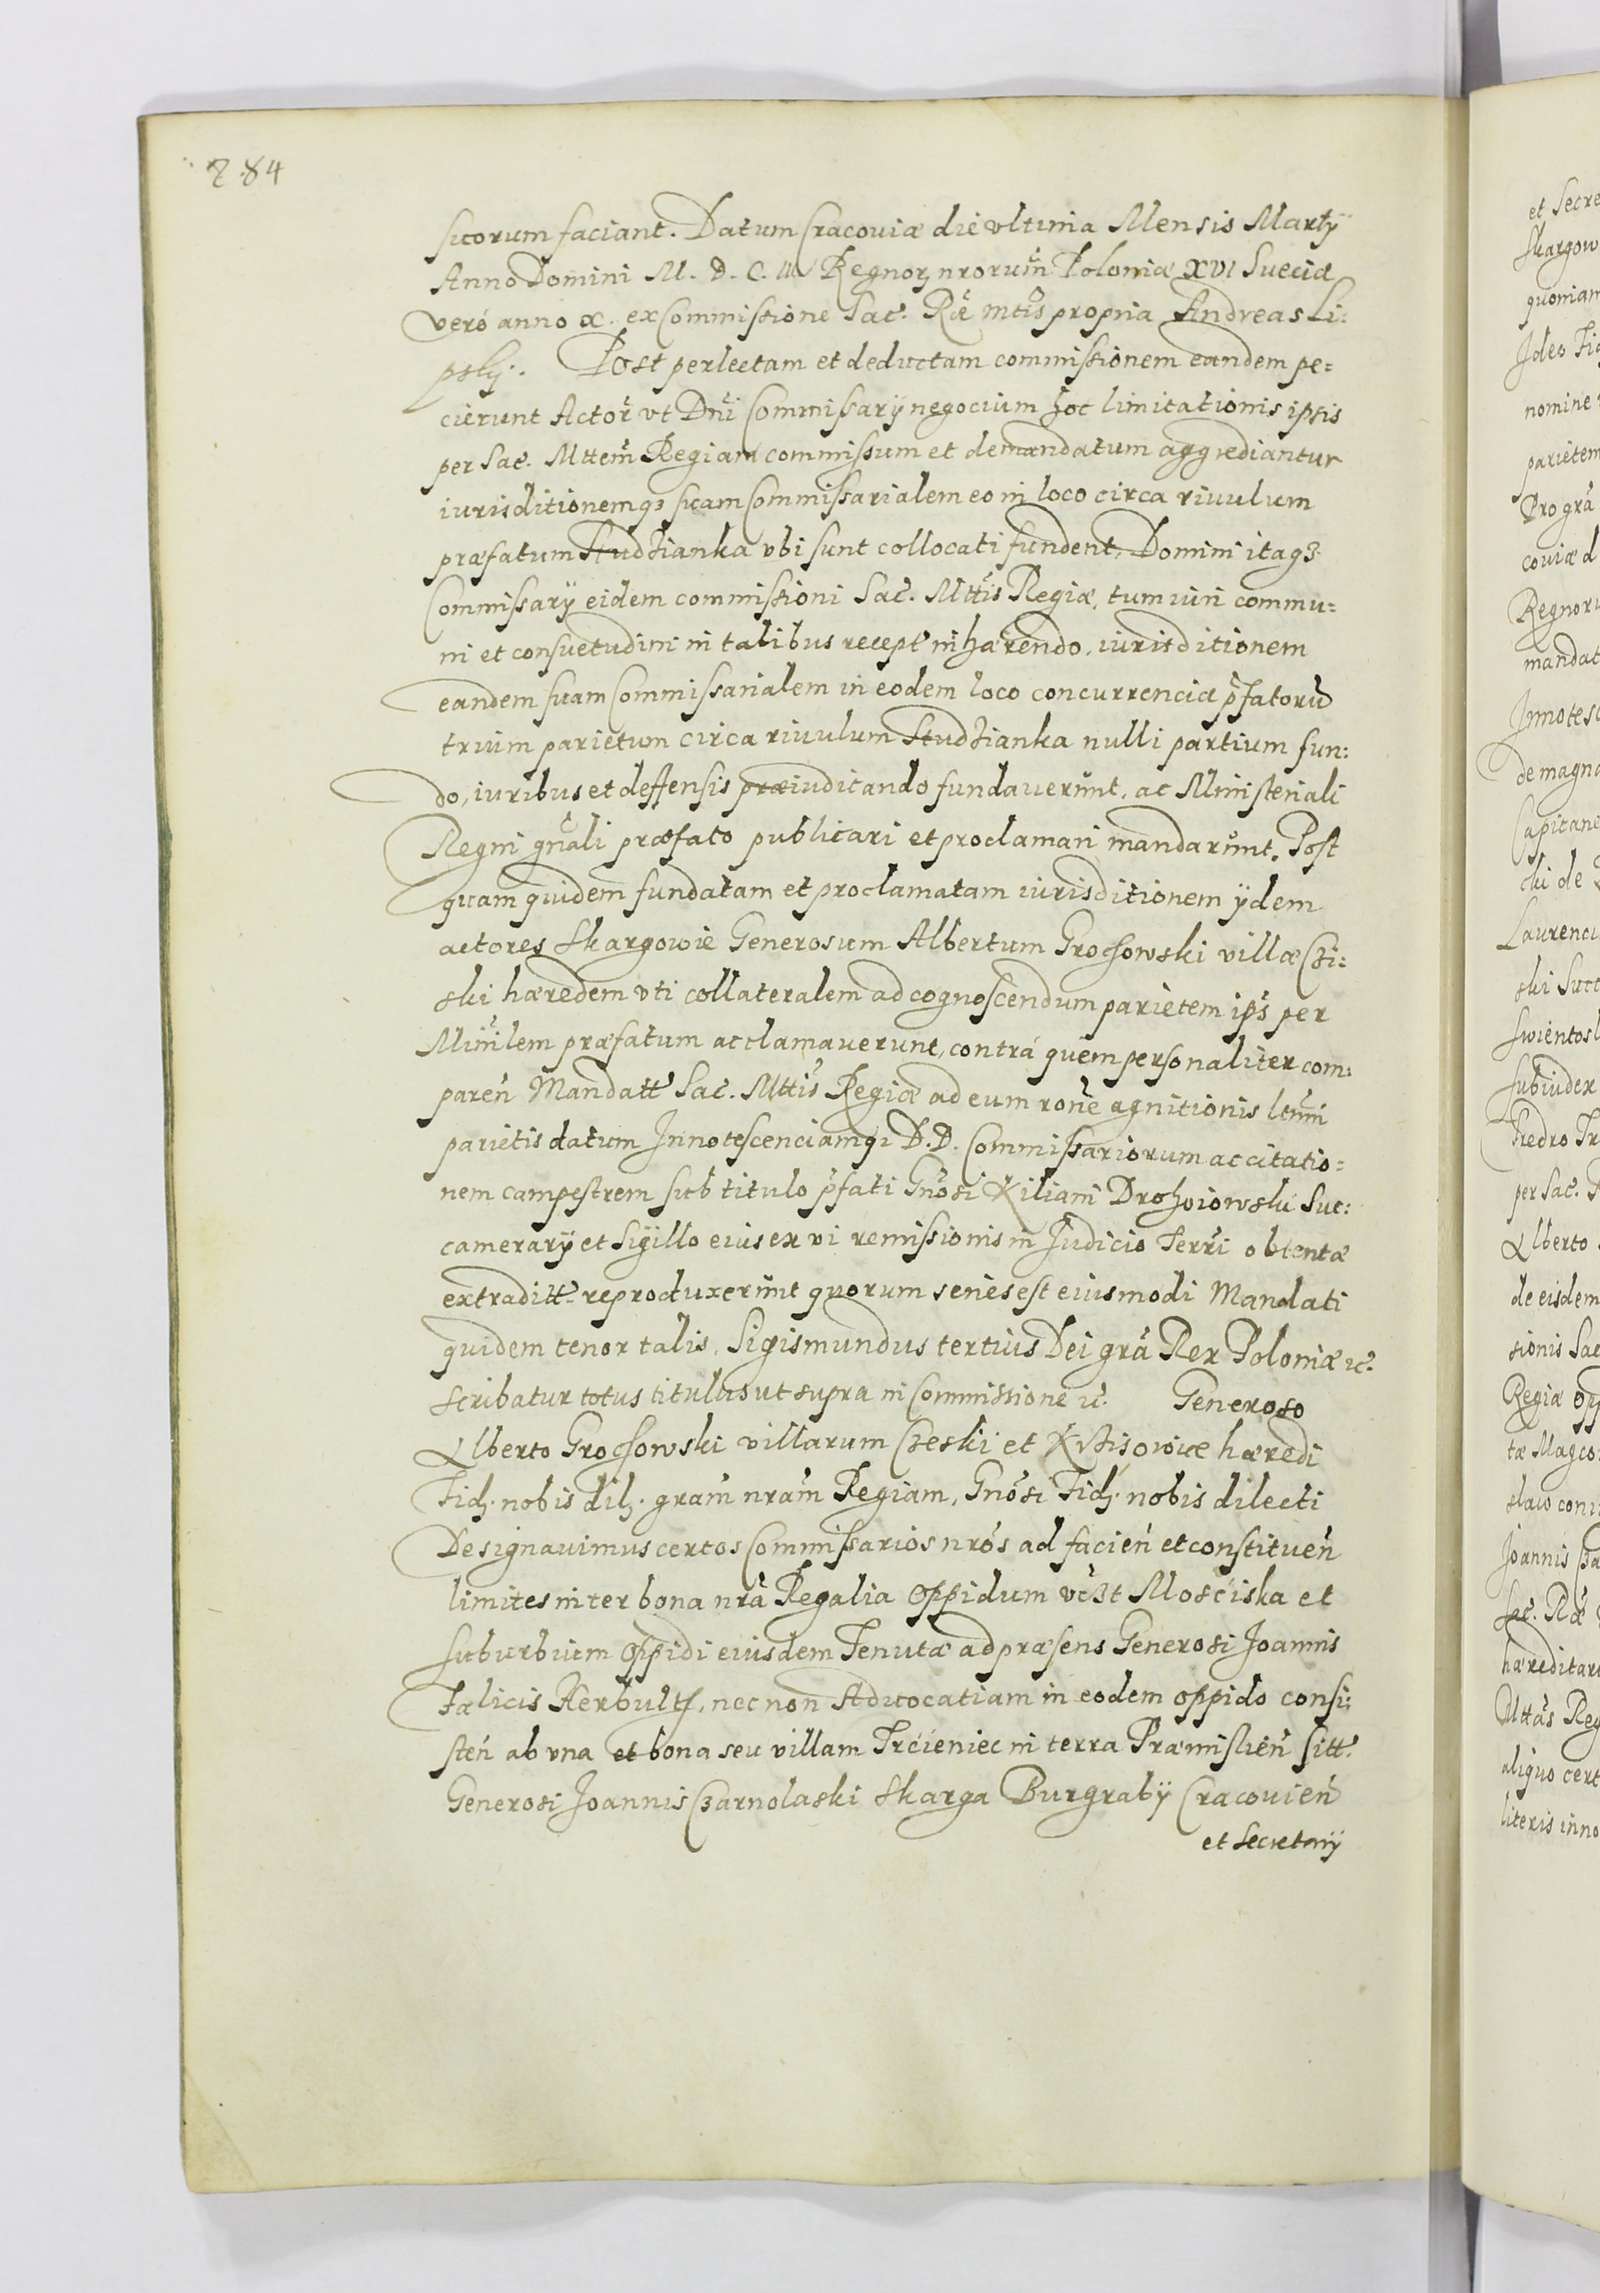 284
suorum faciant. Datum Cracouiæ die vltima Mensis Martÿ
Anno Domini M. D. C. III Regnoꝝ nrorum̃ Poloniæ XVI Sueciæ
veró anno X. ex Commissione Sac. Ræ mtis propria Andreas Li:
pskÿ. Post perlectam et deductam commissionem eandem pe=
cierunt Actor̃ vt Dnĩ Commissarÿ negocium hoc limitationis ipsis
per Sac. Mttem̃ Regiam commissum et demandatum aggrediantur
iurisditionemqꝫ suam Commissarialem eo in loco circa riuulum
præfatum Studzianka vbi sunt collocati fundent. Domini itaqꝫ
Commissarÿ eidem commissioni Sac. Mttis Regiæ, tum iuri commu=
ni et consuetudini in talibus recept̃ inhærendo, iurisditionem
eandem suam Commissarialem in eodem loco concurrenciæ p̃fatorũ
trium parietum circa riuulum Studzianka nulli partium fun:
do, iuribus et deffensis præiudicando fundaverunt, ac Ministeriali
Regni gnãli præfato publicari et proclamari mandarunt. Post
quam quidem fundatam et proclamatam iurisditionem ÿdem
actores Skargowie Generosum Albertum Grochowski villæ Czi:
ski hæredem vti collateralem ad cognoscendum parietem ips̃ per
Minĩlem præfatum acclamauerunt, contrá quem personaliter com:
paren̄ Mandatt Sac. Mttis Regiæ ad eum ronẽ agnitionis ltimĩ
parietis datum Innotescenciamqꝫ D.D. Commissariorum ac citatio=
nem campestrem sub titulo p̃fati Gnõsi Kiliani Drohoiowski Suc:
camerarÿ et Sigillo eius ex vi remissionis in Judicio Terrĩ obtentæ
extraditt reproduxerunt quorum series est eiusmodi Mandati
quidem tenor talis, Sigismundus tertius Dei grã Rex Poloniæ ꝛc.
scribatur totus titulus ut supra in Commissione ꝛc. Generoso
Alberto Grochowski villarum Czeski et Krzisowice hæredi
Fidꝫ. nobis dilꝫ. gram̃ nram̃ Regiam, Gnõsi Fidꝫ. nobis dilecti
Designauimus certos Commissarios nrõs ad facien̄ et constituen̄
limites inter bona nrã Regalia Oppidum vczt Mosciska et
suburbium Oppidi eiusdem Tenutæ ad præsens Generosi Joannis
Fælicis Herbultt, nec non Aduocatiam in eodem oppido consi:
sten̄ ab vna et bona seu villam Trcieniec in terra Præmislien̄ sitt
Generosi Joannis Czarnolaski Skarga Burgrabÿ Cracouien̄
et Secretarÿ